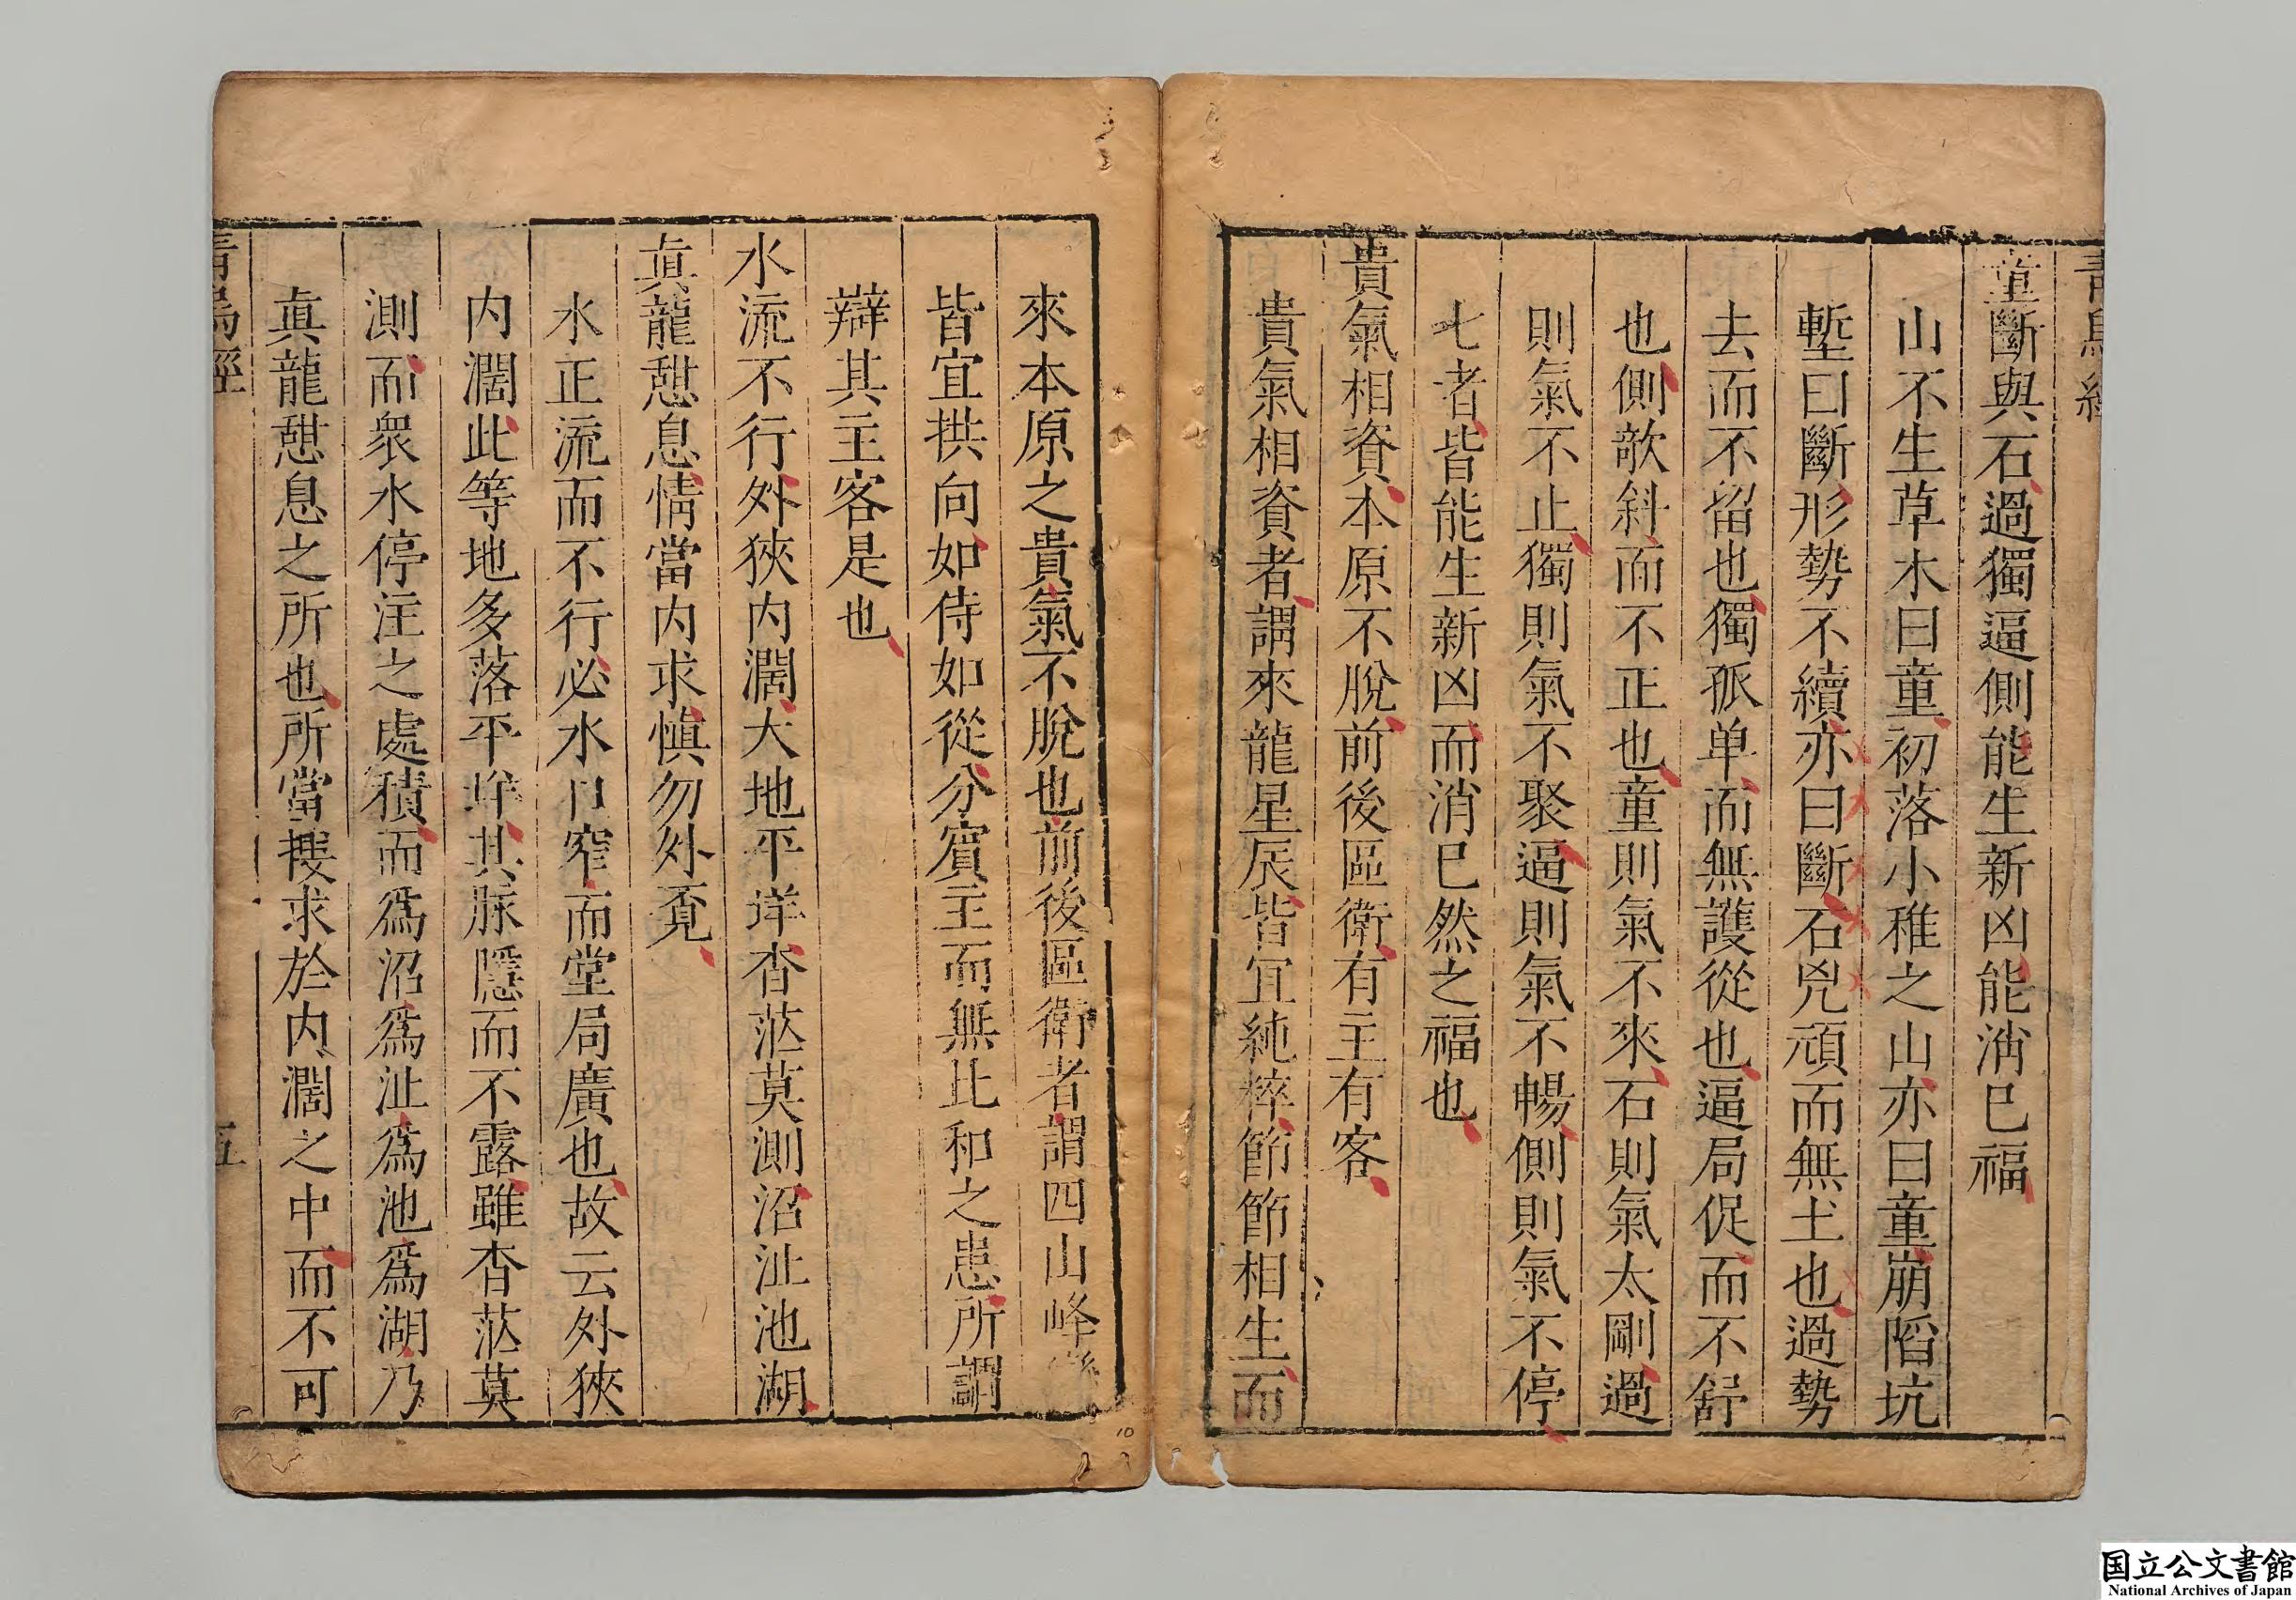 青烏經
童斷與石過獨逼側能生新凶能消已福
山不生草木曰童初落小稚之山亦曰童崩陷坑
塹曰斷形勢不續亦曰斷石兇頑而無土也過勢
去而不留也獨孤单而無護從也逼局促而不舒
也側欹斜而不正也童則氣不來石則氣太剛過
則氣不止獨則氣不聚逼則氣不暢側則氣不停
七者皆能生新凶而消已然之福也
貴氣相資本原不脫前後區衛有主有客
貴氣相資者謂來龍星辰皆宜純粹節節相生而
來本原之貴氣不脫也前後區衛者謂四山峰
皆宜拱向如侍如從分賓主而無比和之患所謂
辯其主客是也
水流不行外狹内濶大地平洋杳茫莫測沼沚池湖
真龍憇息情當内求慎勿外覔
水正流而不行必水口窄而堂局廣也故云外狹
内濶此等地多落平洋其脉隱而不露雖杳茫莫
測而衆水停注之處積而爲沼爲沚爲池爲湖乃
真龍憇息之所也所當搜求於内濶之中而不可
青烏經
五
10
国立公文書館
National Archives of Japan